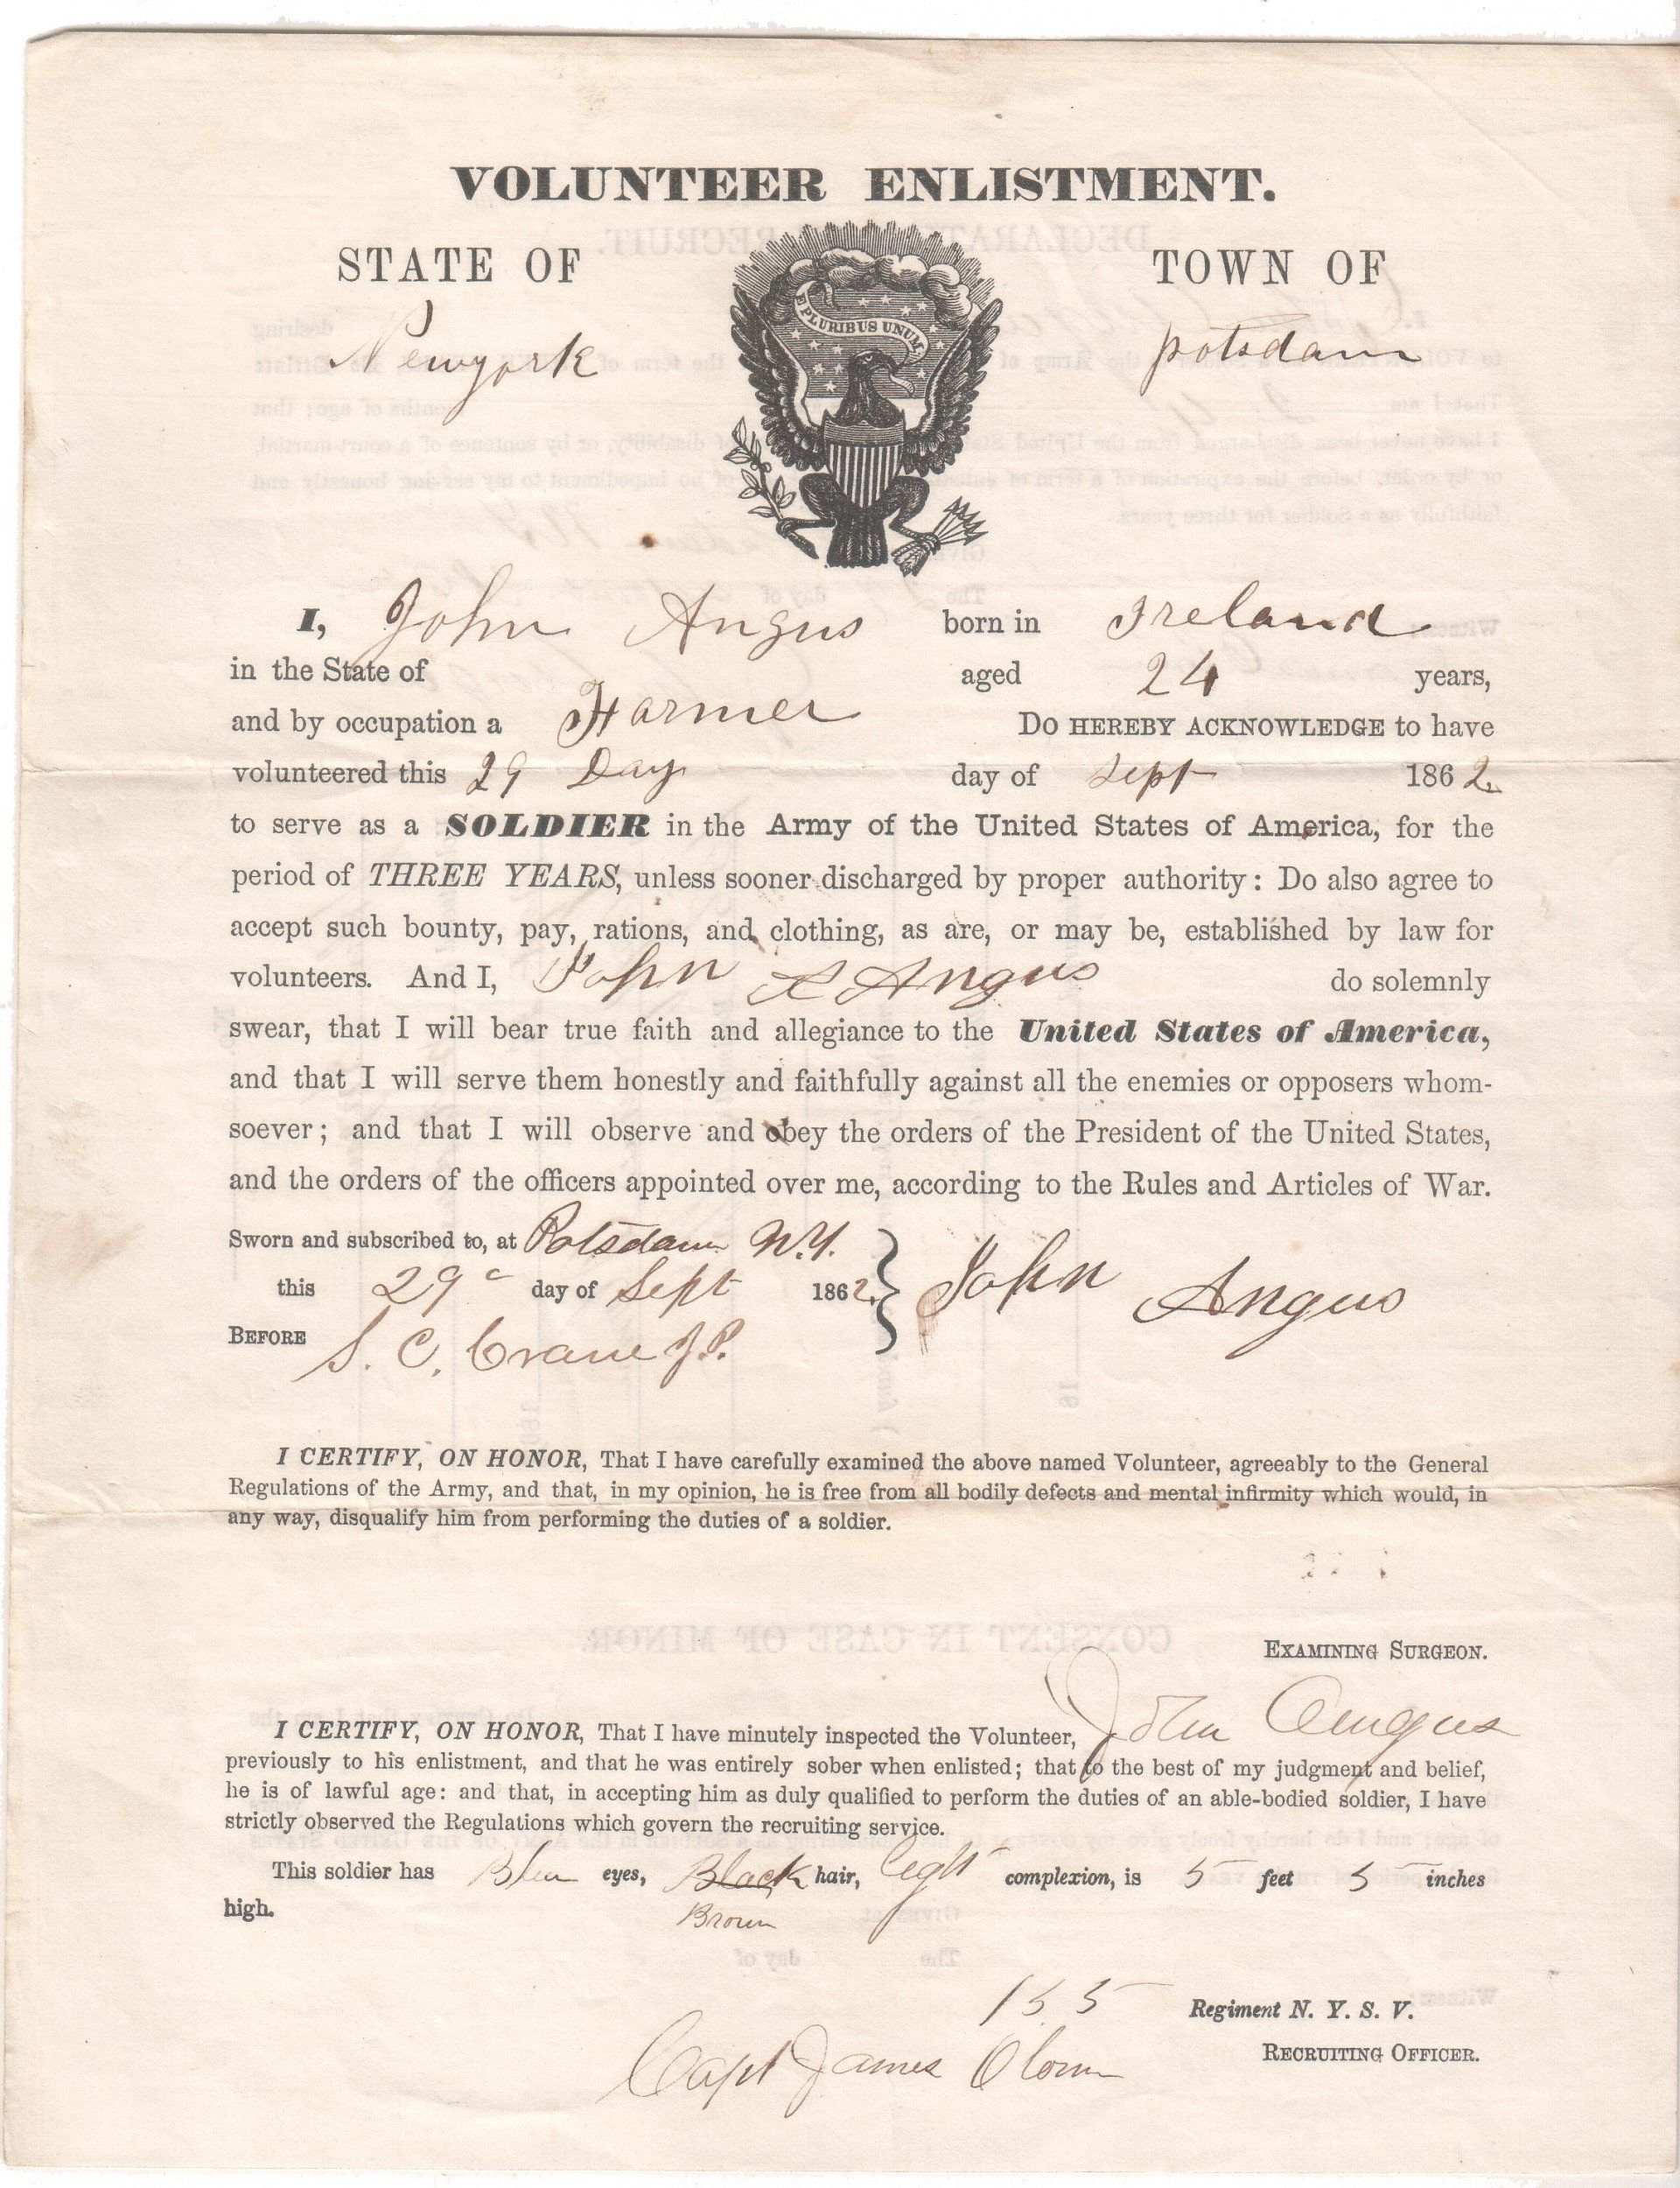 VOLUNTEER ENLISTMENT.
STATE OF TOWN OF
E PLURIBUS UNUM
Newyork potsdam
I, John Angus born in Ireland
in the State of aged 24 years,
and by occupation a Farmer Do HEREBY ACKNOWLEDGE to have
volunteered this 29 Day day of Sept 1862.
to serve as a SOLDIER in the Army of the United States of America, for the
period of THREE YEARS, unless sooner discharged by proper authority: Do also agree to
accept such bounty, pay, rations, and clothing, as are, or may be, established by law for
volunteers. And I, John Angus do solemnly
swear, that I will bear true faith and allegiance to the United States of America,
and that I will serve them honestly and faithfully against all the enemies or opposers whom-
soever; and that I will observe and obey the orders of the President of the United States,
and the orders of the officers appointed over me, according to the Rules and Articles of War.
Sworn and subscribed to, at Potsdam N.Y.
this 29 day of Sept 1862. John Angus
BEFORE S. C. Crane J.P.
I CERTIFY, ON HONOR, That I have carefully examined the above named Volunteer, agreeably to the General
Regulations of the Army, and that, in my opinion, he is free from all bodily defects and mental infirmity which would, in
any way, disqualify him from performing the duties of a soldier.
EXAMINING SURGEON.
I CERTIFY, ON HONOR, That I have minutely inspected the Volunteer, John Angus
previously to his enlistment, and that he was entirely sober when enlisted; that to the best of my judgment and belief,
he is of lawful age: and that, in accepting him as duly qualified to perform the duties of an able-bodied soldier, I have
strictly observed the Regulations which govern the recruiting service.
This soldier has eyes, Black hair, complexion, is 5 feet 5 inches
high. Brown
155 Regiment N. Y. S. V.
RECRUITING OFFICER.
Capt James